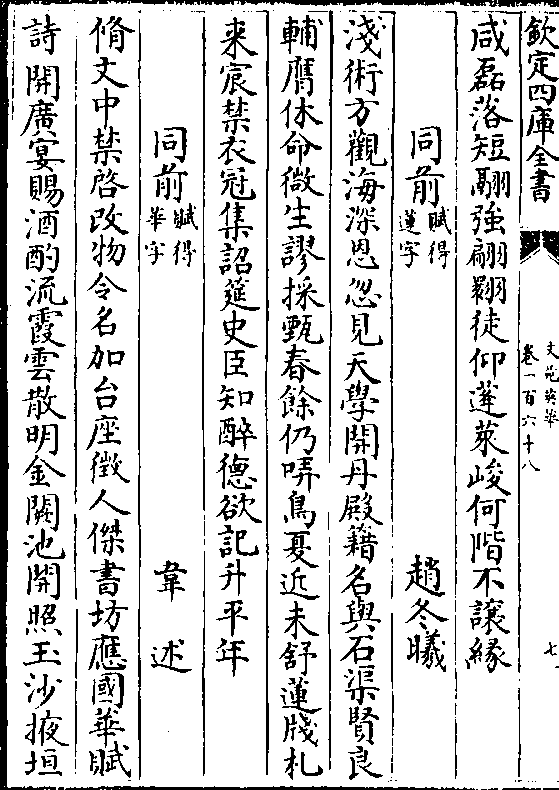 欽定四庫全書
文苑英華
卷一百六十八
七
咸磊落短翮強翩翾徒仰蓬萊峻何階不讓緣
同前賦得蓮字
趙冬曦
淺術方觀海深恩忽見天學開丹殿籍名與石渠賢良
輔膺休命微生謬採甄春餘仍哢鳥夏近未舒蓮牋札
来宸禁衣冠集詔筵史臣知醉德欲記升平年
同前賦得華字
韋述
脩文中禁啓改物令名加台座徵人傑書坊應國華賦
詩開廣宴賜酒酌流霞雲散明金闕池開照玉沙掖垣